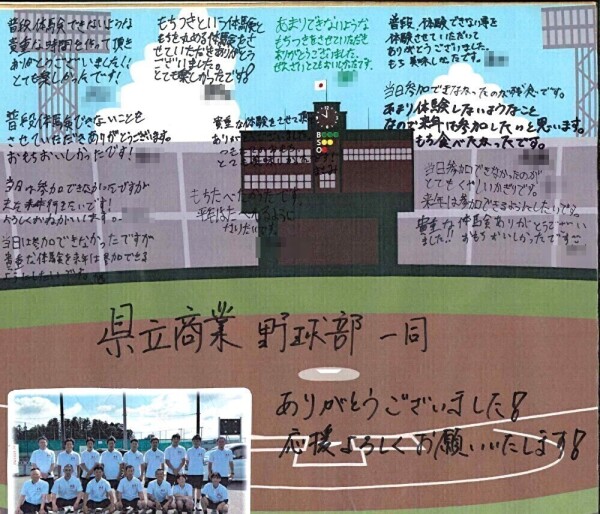 普段体験できないような
貴重な時間を作って頂き
ありがとうございました!
とても楽しかったです!
もちつきという体験と
もちを丸める体験をさ
せていただきありがとう
ございました。
とても楽しかったです!
あまりできないような
もちつきをさせていただき
ありがとうございました。
ぜんざいとてもおいしかったです。
普段、体験できない事を
体験させていただいて
ありがとうございました。
もち美味しかったです。
普段体験できないことを
させていただきありがとうございます。
おもちおいしかったです!
貴重な体験をさせて頂
あり
とて
当日参加できなかったのが残念です。
あまり体験しないようなこと
なので来年は参加したいと思います。
もち食べたかったです。
当日参加できなかったですが
来年
よろしくおねがいします。
もちたべたかったです。
来年はたべれるように
なりたいです。
当日参加できなかったのが
とてもくやしいかぎりです。
来年は参加できるようにしたいです。
貴重な体験ありがとうござい
ました!! おもちおいしかったです
当日は参加できなかったですが
貴重な体験を来年は参加できる
ように
B
S
O
県立商業 野球部 一同
ありがとうございました!
応援よろしくお願いいたします!